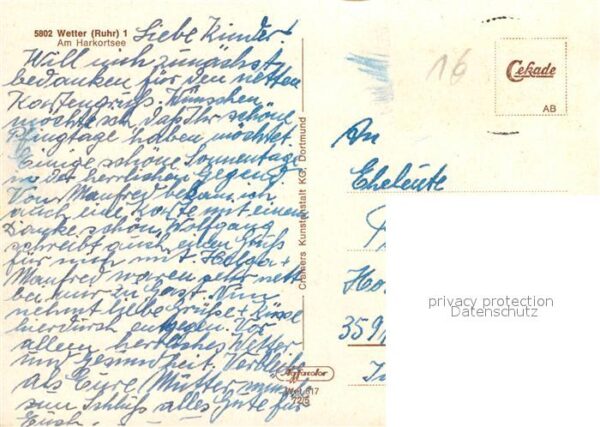 5802 Wetter (Ruhr) 1
Am Harkortsee
Liebe Kinder!
Will mich zunächst
bedanken für den netten
Kartengruß. Wünschen
möchte ich, daß Ihr schöne
Pfingtage haben möchtet.
Einige schöne Sonnentage
in der herrlichen Gegend.
Von Manfred bekam ich
auch eine Karte mit einem
Dankeschön, Wolfgang
schreibt auch einen Gruß
für mich mit. Helga +
Manfred waren sehr nett
bei mir zu Gast. Nun
nehmt liebe Grüße + Küsse
hierdurch entgegen. Vor
allem herrliches Wetter
und Gesundheit. Verbleibe
als Eure Mutter
zum Schluß alles Gute für
Euch.
Cramers Kunstanstalt KG, Dortmund
Agfacolor
Wet 617
72/5
16
Cekade
AB
An
Eheleute
privacy protection
Datenschutz
359